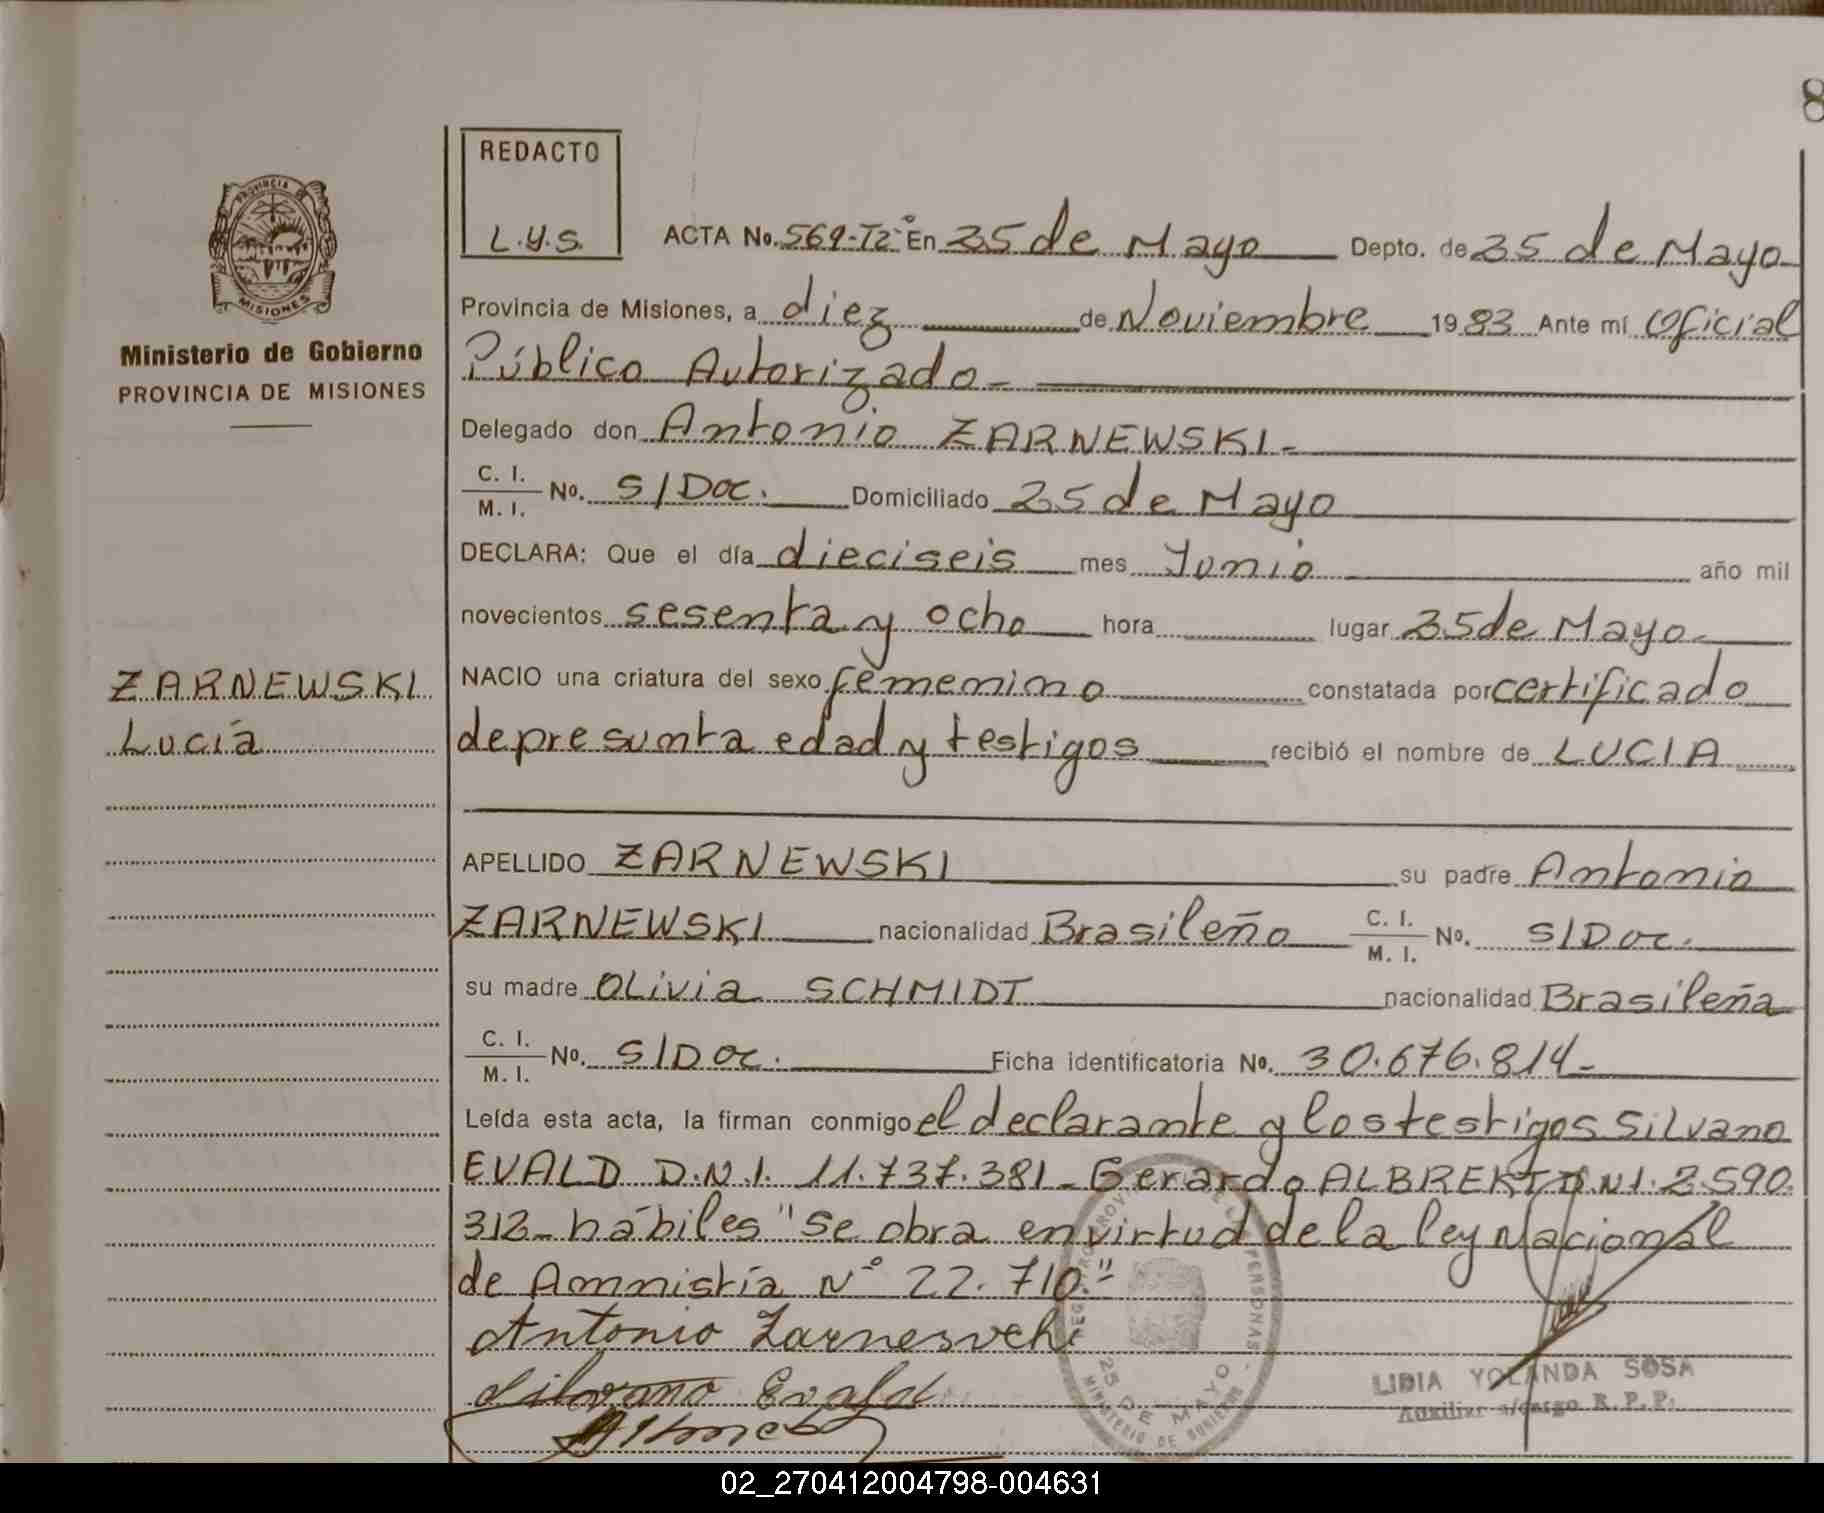 8
REDACTO
L.Y.S.
PROVINCIA DE
MISIONES
Ministerio de Gobierno
PROVINCIA DE MISIONES
ACTA No. 569-T2° En 25 de Mayo Depto. de 25 de Mayo
Provincia de Misiones, a diez de Noviembre 1983 Ante mí Oficial
Público Autorizado-
Delegado don Antonio ZARNEWSKI-
C. I.
M. I. No. S/Doc. Domiciliado 25 de Mayo
DECLARA: Que el día dieciseis mes Junio año mil
novecientos sesenta y ocho hora lugar 25 de Mayo-
ZARNEWSKI
Lucía
NACIO una criatura del sexo femenino constatada por certificado
de presunta edad y testigos recibió el nombre de LUCIA
APELLIDO ZARNEWSKI su padre Antonio
ZARNEWSKI nacionalidad Brasileño C. I. M. I. No. S/Doc.
su madre OLivia SCHMIDT nacionalidad Brasileña
C. I.
M. I. No. S/Doc. Ficha identificatoria No. 30.676.814-
Leída esta acta, la firman conmigo el declarante y los testigos Silvano
EVALD D.N.I. 11.737.381- Gerardo ALBREKT D.N.I. 2.590.
312- hábiles "Se obra en virtud de la ley Nacional
de Amnistía N° 22.710"
Antonio
Silvano Evald
25 DE MAYO
MINISTERIO DE GOBIERNO
LIDIA YOLANDA SOSA
Auxiliar a/cargo R. P. P.
02_270412004798-004631